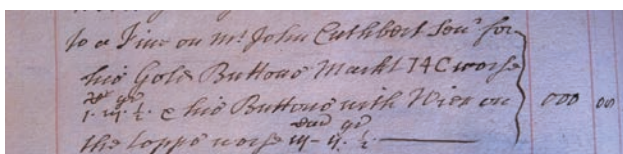 to a Fine on Mr. John Cuthbert Senr. for
his Gold Buttons Markt I4C worse
1. iij. ½. & his Buttons with Wier on
the topps worse iij- ij. ½.
000 00